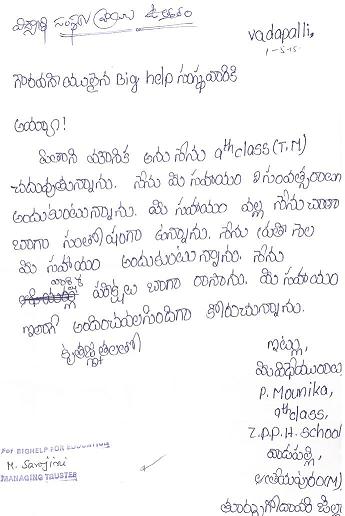 విద్యార్థి సంస్థకు వ్రాయు ఉత్తరం
vadapalli,
1-5-15.
గౌరవనీయులైన Big help సంస్థవారికి
అయ్యా!
మౌనిక అను నేను 9th class (T.M)
చదువుతున్నాను. నేను మీ సహాయం
అందుకుంటున్నాను. మీ సహాయం వల్ల నేను చాలా
బాగా సంతోషంగా ఉన్నాను. నేను ప్రతి నెల
మీ సహాయం అందుకుంటున్నాను. నేను
పరీక్షలు బాగా రాసాను. మీ సహాయం
ఇలాగే అందించవలసిందిగా కోరుచున్నాను.
కృతజ్ఞతలతో
ఇట్లు,
మీ విధేయురాలు
P. Mounika,
9th class,
Z.P.P.H. School
వాడపల్లి,
తూర్పుగోదావరి జిల్లా
For BIGHELP FOR EDUCATION
M. Sarojini
MANAGING TRUSTEE